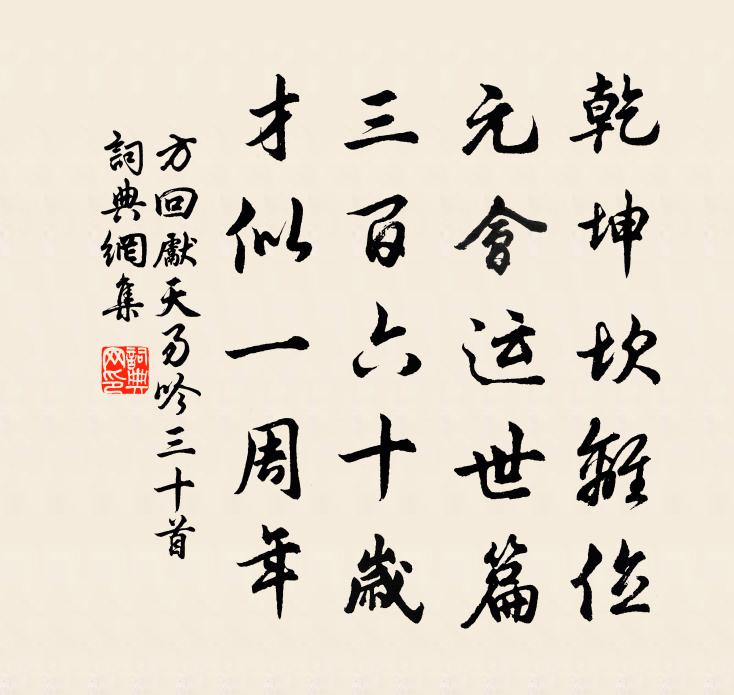 乾坤坎離位
元會运世篇
三百六十歲
才似一周年
方回獻天易吟三十首
詞典網集
詞典网印